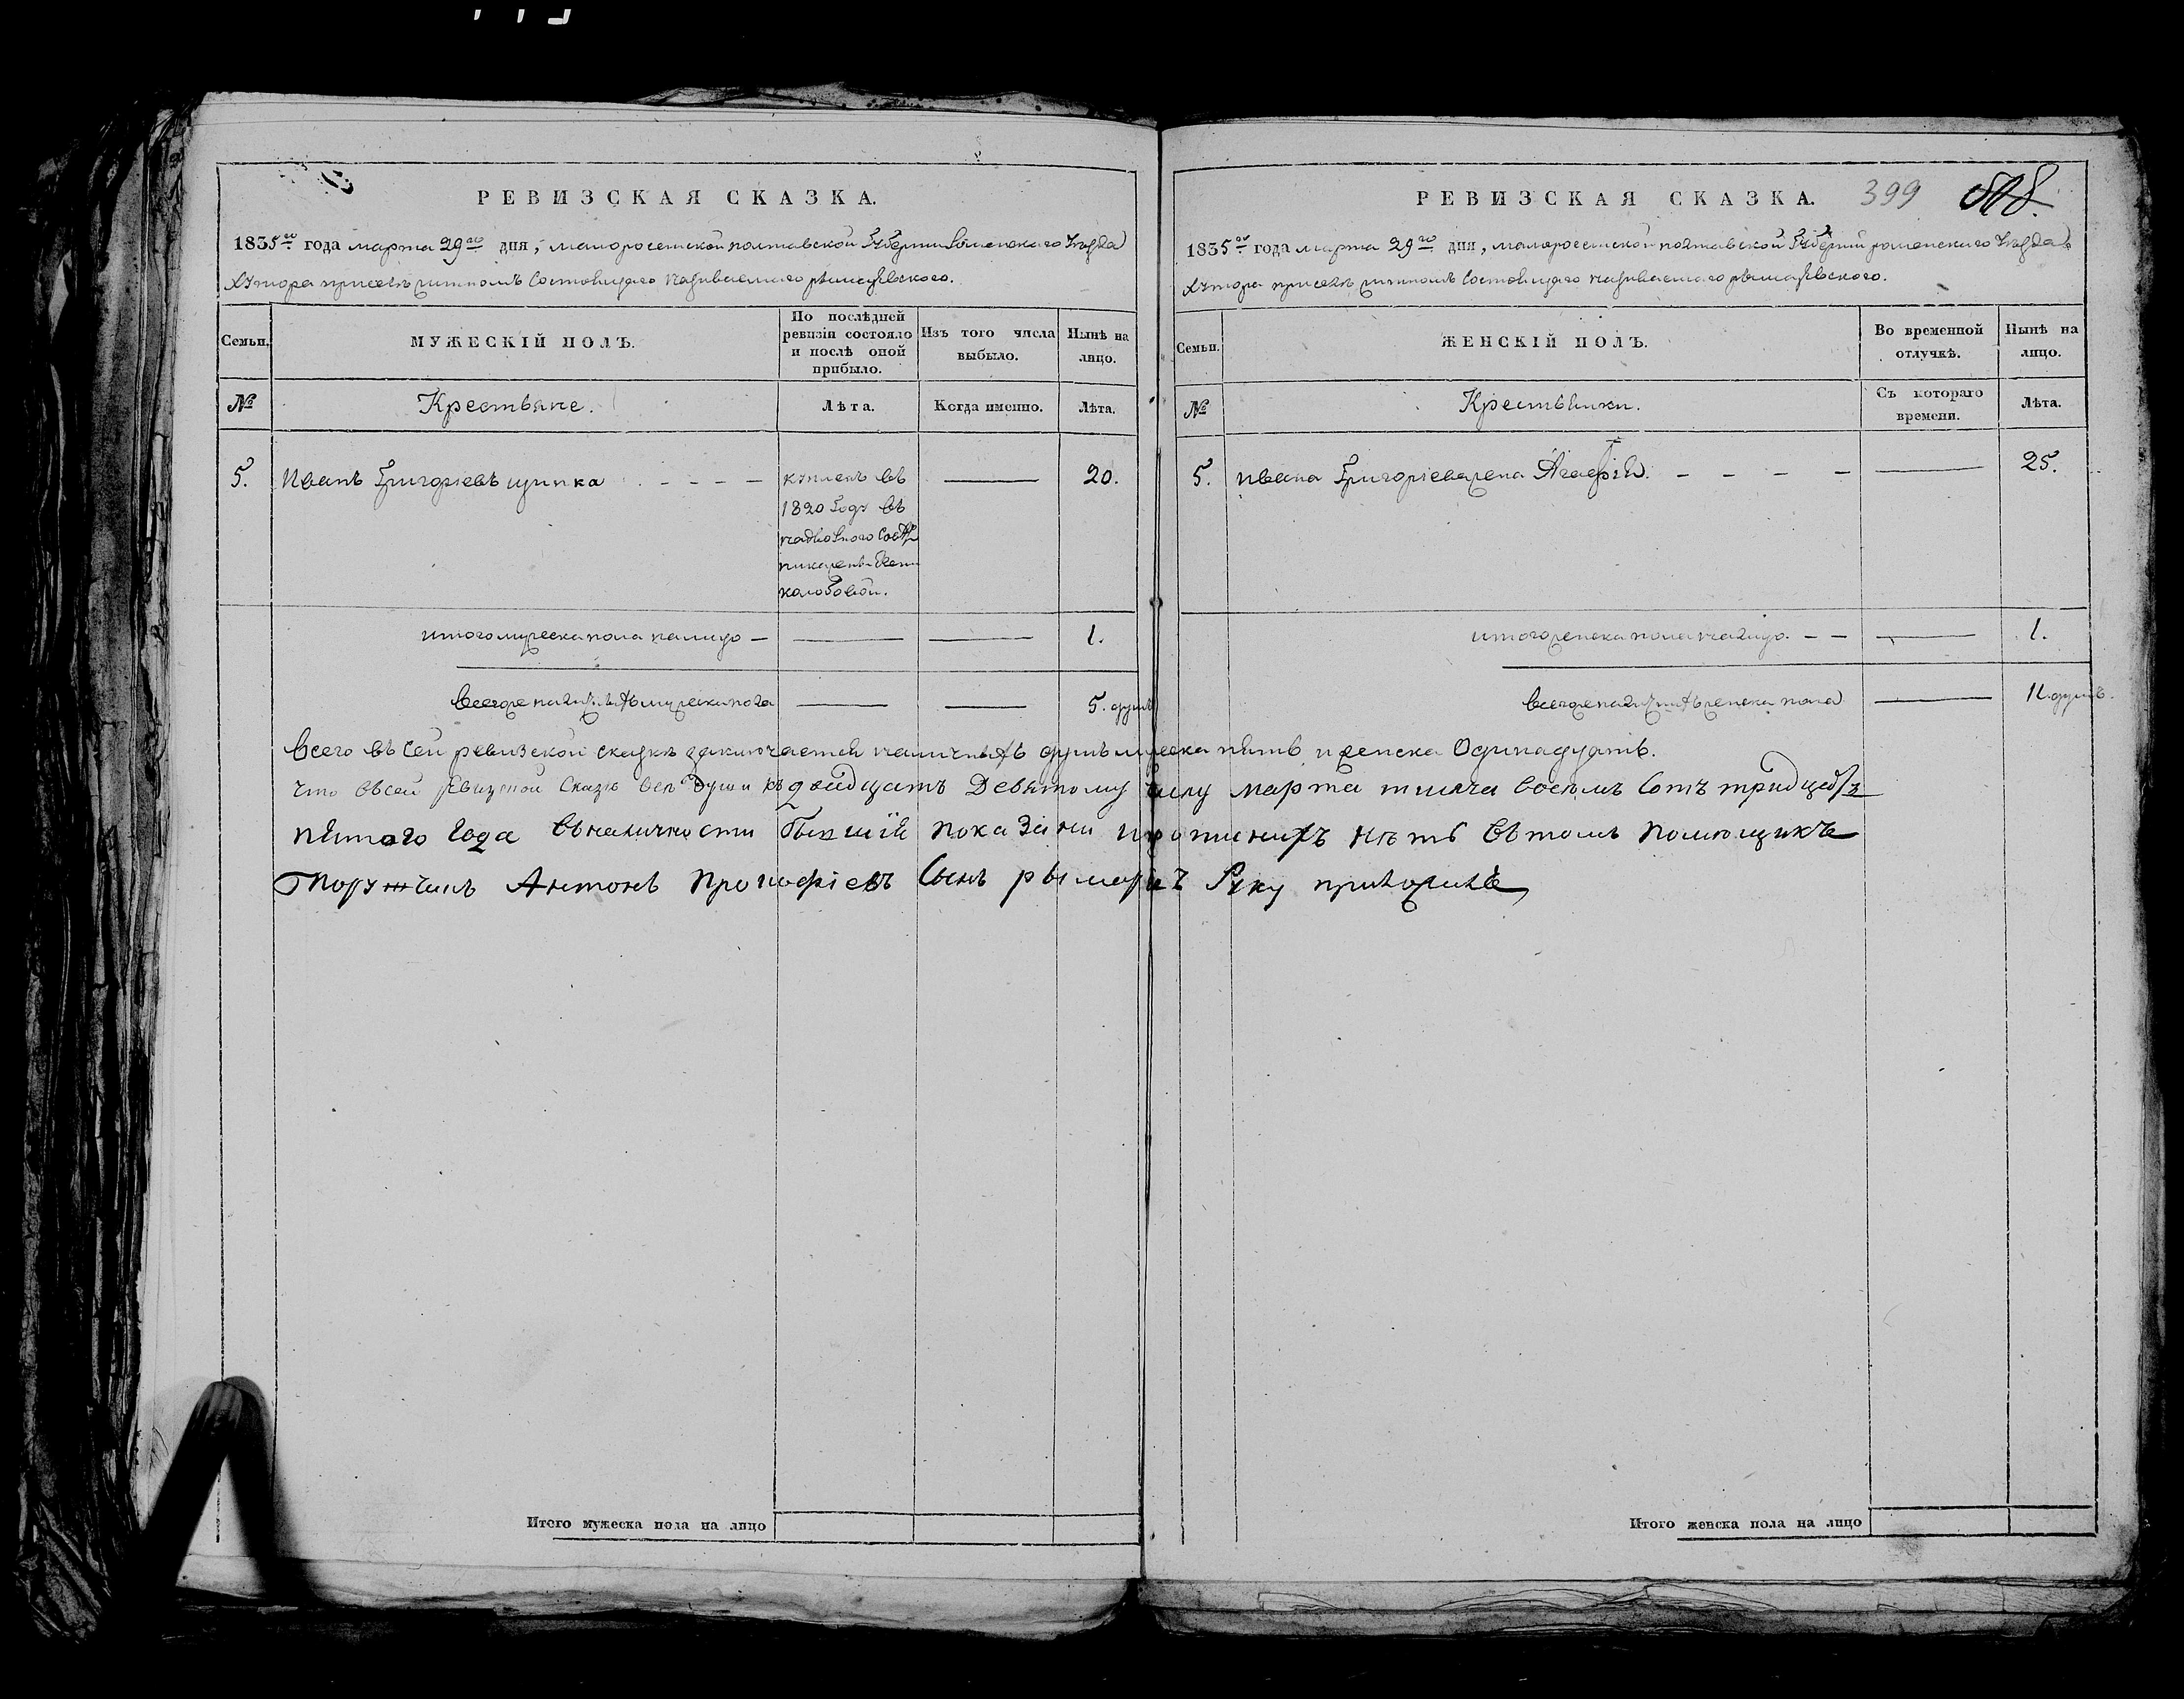 РЕВИЗСКАЯ СКАЗКА.
1835го года марта 29го дня, малоросетской полтавской Губернии роменского уезда
хутора приселе состоящего называемого
Семьи.
МУЖЕСКІЙ ПОЛЪ.
По послѣдней ревизіи состояло и послѣ оной прибыло.
Изъ того числа выбыло.
Нынѣ на лицо.
№
Крестьяне.
Лѣта.
Когда именно.
Лѣта.
5.
иванъ Григорiевъ щипка
купленъ въ
1820 Году въ
20.
итого мужеска пола налицо
1.
всегоже наличныхъ мужеска пола
5. душъ
РЕВИЗСКАЯ СКАЗКА.
399
1835го года марта 29го дня, малоросетской полтавской Губернии роменского уезда
хутора приселе состоящего называемого
Семьи.
ЖЕНСКІЙ ПОЛЪ.
Во временной отлучкѣ.
Нынѣ на лицо.
№
Крестьянки.
Съ котораго времени.
Лѣта.
5.
ивана Григорiева жена Агафiя
25.
итого женска пола налицо
1.
всегоже наличныхъ женска пола
11. душъ
всего въ сей ревизской сказке заключается наличныхъ душъ мужеска пять и женска Одинадцать.
Что всей ревизской Сказке все души къ двадцать Девятому числу марта тисяча восемъ сотъ тридцать
пятого года вналичности бывшiй показани ипотиннихъ нетъ втомъ помющикъ
Порутчикъ Антонъ Прокофiевъ Сынъ рымаръ Руку приложилъ
Итого мужеска пола на лицо
Итого женска пола на лицо